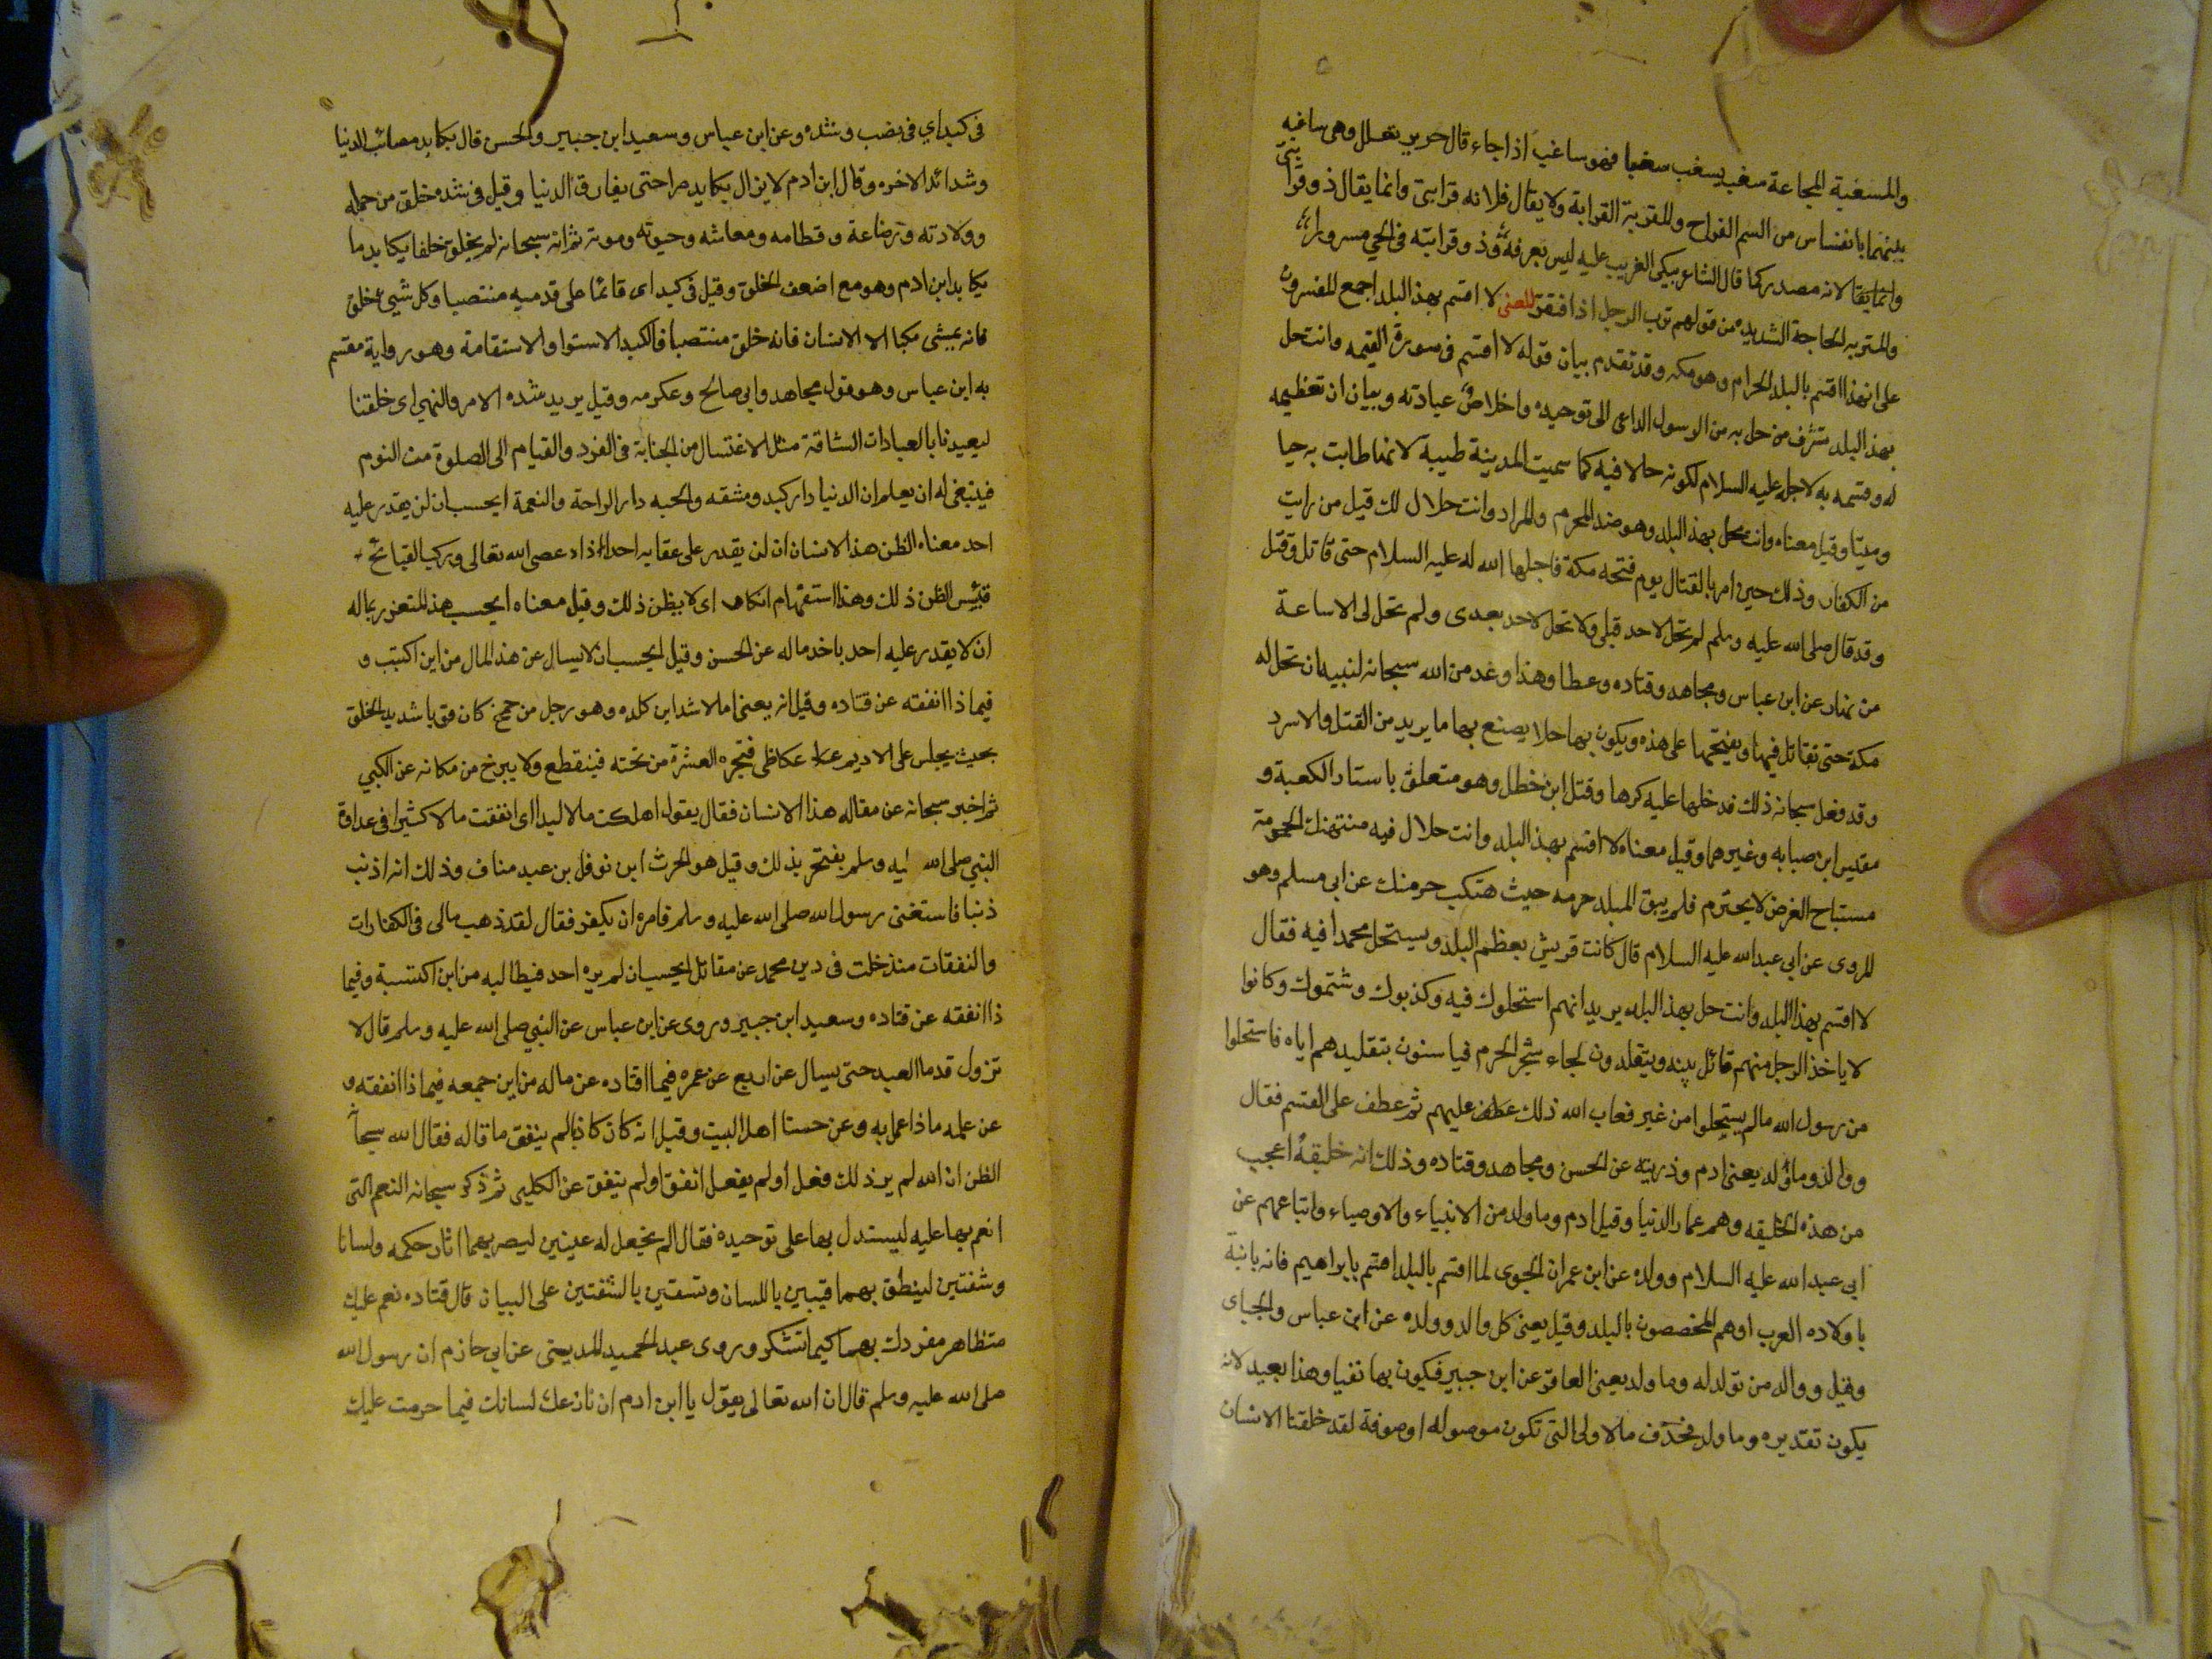 والمسغبة المجاعة سغب يسغب سغبا فهو ساغب اذا جاء قال جرير تعلل وهي ساغبه
بنيها بانفاس من الشم القراح والمقربة القرابة ولا يقال فلانه قرابتى وانما يقال ذو قرابتى
وانما يقا لانه مصدر كما قال الشاعر يبكى الغريب عليه ليس يعرفه وذو قرابته فى الحي مسرور
والمتربه الحاجة الشديده من قولهم ترب الرجل اذا افتقر المعنى لا اقسم بهذا البلد اجمع المفسرون
على ان هذا اقسم بالبلد الحرام وهو مكه وقد تقدم بيان قوله لا اقسم فى سورة القيمه وانت حل
بهذا البلد شرف من حل به من الرسول الداعى الى توحيده واخلاص عبادته وبيان ان تعظيمه
له وقسمه به لاجله عليه السلام لكونه حالا فيه كما سميت المدينة طيبه لانها طابت به حيا
وميتا وقيل معناه وانت محل بهذا البلد وهو ضد المحرم والمراد وانت حلال لك قتل من رايت
من الكفار وذلك حين امر بالقتال يوم فتحه مكة فاحلها الله له عليه السلام حتى قاتل وقتل
وقد قال صلى الله عليه وسلم لم تحل لاحد قبلى ولا تحل لاحد بعدى ولم تحل لى الا ساعة
من نهار عن ابن عباس ومجاهد وقتاده وعطا وهذا وعد من الله سبحانه لنبيه ان تحل له
مكة حتى تقاتل فيها ويفتحها على هذه ويكون بها حلا يصنع بها ما يريد من القتل والاسر
وقد فعل سبحانه ذلك فدخلها عليه كرها وقتل ابن خطل وهو متعلق باستار الكعبة و
مقيس ابن صبابه وغيرهما وقيل معناه لا اقسم بهذا البلد وانت حلال فيه منتهك الحرمة
مستباح العرض لا يحترم فلم يبق البلد حرمه حيث هتكت حرمتك عن ابى مسلم وهو
المروى عن ابى عبد الله عليه السلام قال كانت قريش يعظم البلد ويستحل محمدا فيه فقال
لا اقسم بهذا البلد وانت حل بهذا البلد يريد انهم استحلوك فيه وكذبوك وشتموك وكانوا
لا ياخذ الرجل منهم قاتل بينه ويتقلدون لحاء شجر الحرم فيامنون بتقليدهم اياه فاستحلوا
من رسول الله مالم يستحلوا من غير فعاب الله ذلك عليهم ثم عطف على القسم فقال
ووالد وما ولد يعنى ادم وذريته عن الحسن ومجاهد وقتاده وذلك انه خليقة اعجب
من هذه الخليقه وهم عمار الدنيا وقيل ادم وما ولد من الانبياء والاوصياء واتباعهم عن
ابى عبد الله عليه السلام وولده عن ابن عمران الجوى لما اقسم بالبلد اقسم بابراهيم فانه بانية
باولاده العرب اوهم المخصصون بالبلد وقيل يعنى كل والد وولده عن ابن عباس والجباى
وقيل ووالد من تولد له وما ولد يعنى العاقر عن ابن جبير فيكون بها نفيا وهذا بعيد لانه
يكون تقديره وما ولد فحذف ما الاولى التى تكون موصوله او صوفة لقد خلقنا الانسان
فى كبد اي فى نصب وشده وعن ابن عباس وسعيد ابن جبير والحسن قال يكابد مصائب الدنيا
وشدائد الاخره وقال ابن ادم لا يزال يكابد مرا حتى يفارق الدنيا وقيل فى شده خلق من حمله
وولادته ورضاعة وفطامه ومعاشه وحيوته وموته ثم انه سبحانه لم يخلق خلقا يكابد ما
يكابد ابن ادم وهو مع اضعف الخلق وقيل فى كبد اى قائما على قدميه منتصبا وكل شيئ خلق
فانه يمشى مكبا الا الانسان فانه خلق منتصبا فالكبد الاستوا والاستقامة وهو رواية مقسم
به ابن عباس وهو قول مجاهد وابى صالح وعكرمه وقيل يريد شده الامر والنهي اى خلقنا
ليعبدنا بالعبادات الشاقة مثل الاغتسال من الجنابة فى الفرد والقيام الى الصلوة من النوم
فينبغى له ان يعلم ان الدنيا دار كبد ومشقه والجنه دار الراحة والنعمة ايحسب ان لن يقدر عليه
احد معناه الظن هذا الانسان ان لن يقدر على عقابه احد اذا عصى الله تعالى وركب القبائح
فبئس الظن ذلك وهذا استفهام انكار اى لا يظن ذلك وقيل معناه ايحسب هذا المتعزز بماله
ان لا يقدر عليه احد ياخذ ماله عن الحسن وقيل ايحسب ان لا يسال عن هذا المال من اين اكتسب و
فيما ذا انفقه عن قتاده وقيل انه يعنى ابا الاشد ابن كلده وهو رجل من جمح كان قويا شديد الخلق
بحيث يجلس على الاديم عكاظى فتجره العشرة من تحته فينقطع ولا يبرح من مكانه عن الكلبي
ثم اخبر سبحانه عن مقاله هذا الانسان فقال يقول اهلكت مالا لبدا اى انفقت مالا كثيرا فى عداوة
النبي صلى الله عليه وسلم يفتخر بذلك وقيل هو الحرث ابن نوفل بن عبد مناف وذلك انه اذنب
ذنبا فاستفتى رسول الله صلى الله عليه وسلم فامره ان يكفر فقال لقد ذهب مالى فى الكفارات
والنفقات منذ دخلت فى دين محمد عن مقاتل ايحسب ان لم يره احد فيطالبه من اين اكتسبة وفيما
ذا انفقه عن قتاده وسعيد ابن جبير وروى عن ابن عباس عن النبي صلى الله عليه وسلم قال لا
تزول قدما العبد حتى يسال عن اربع عن عمره فيما افناده عن ماله من اين جمعه فيما ذا انفقه و
عن علمه ماذا عمل به وعن حبنا اهل البيت وقيل انه كان كاذبا لم ينفق ما قاله فقال الله سبحا
الظن ان الله لم ير ذلك فعل او لم يفعل انفق او لم ينفق عن الكلبي ثم ذكر سبحانه النعم التى
انعم بها عليه ليستدل بها على توحيده فقال الم نجعل له عينين ليبصر بهما اثار حكمه ولسانا
وشفتين لينطق بهما فيبين باللسان وتستقين بالشفتين على البيان قال قتاده نعم عليك
متظاهر مفردك بهما كيما تشكر وروى عبد الحميد المدينى عن ابي حازم ان رسول الله
صلى الله عليه وسلم قال ان الله تعالى يقول يا ابن ادم ان نازعك لسانك فيما حرمت عليك